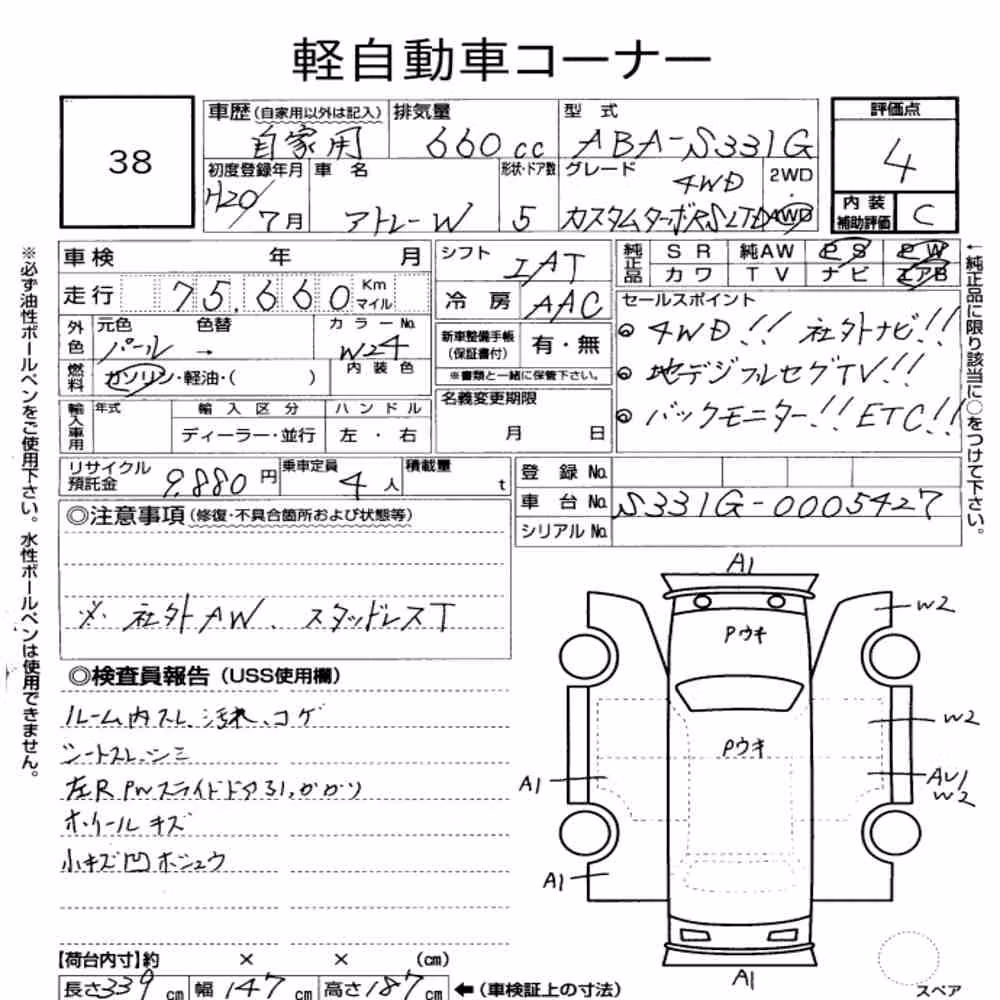 軽自動車コーナー
38
車歴(自家用以外は記入) 自家用
排気量 660cc
型式 ABA-S331G
評価点 4
初度登録年月 H20/7月
車名 アトレーW
形状・ドア数 5
グレード 4WD カスタムターボRSLTD
2WD・4WD
内装補助評価 C
車検 年 月
シフト IAT
純正品 SR 純AW PS PW
カワ TV ナビ エアB
走行 75,660 Km マイル
冷房 AAC
外色 元色 パール 色替 →
カラーNo. W24
新車整備手帳(保証書付) 有・無
※書類と一緒に保管下さい。
燃料 ガソリン・軽油・( )
内装色
セールスポイント
◎4WD!! 社外ナビ!!
◎地デジフルセグTV!!
◎バックモニター!! ETC!!
輸入車用 年式 輸入区分 ディーラー・並行 ハンドル 左・右
名義変更期限 月 日
リサイクル預託金 9,880円
乗車定員 4人
積載量 t
登録No.
車台No. S331G-0005427
シリアルNo.
※必ず油性ボールペンをご使用下さい。水性ボールペンは使用できません。
←純正品に限り該当に○をつけて下さい。
◎注意事項(修復・不具合箇所および状態等)
※.社外AW、スタッドレスT
◎検査員報告(USS使用欄)
ルーム内スレ、汚れ、コゲ
シートスレ、シミ
左R PWスライドドア
ホイールキズ
小キズ凹ホシュウ
A1
W2
Pウキ
W2
Pウキ
A1
AU1
W2
A1
A1
スペア
【荷台内寸】約 × × (cm)
長さ339cm 幅147cm 高さ187cm ←(車検証上の寸法)